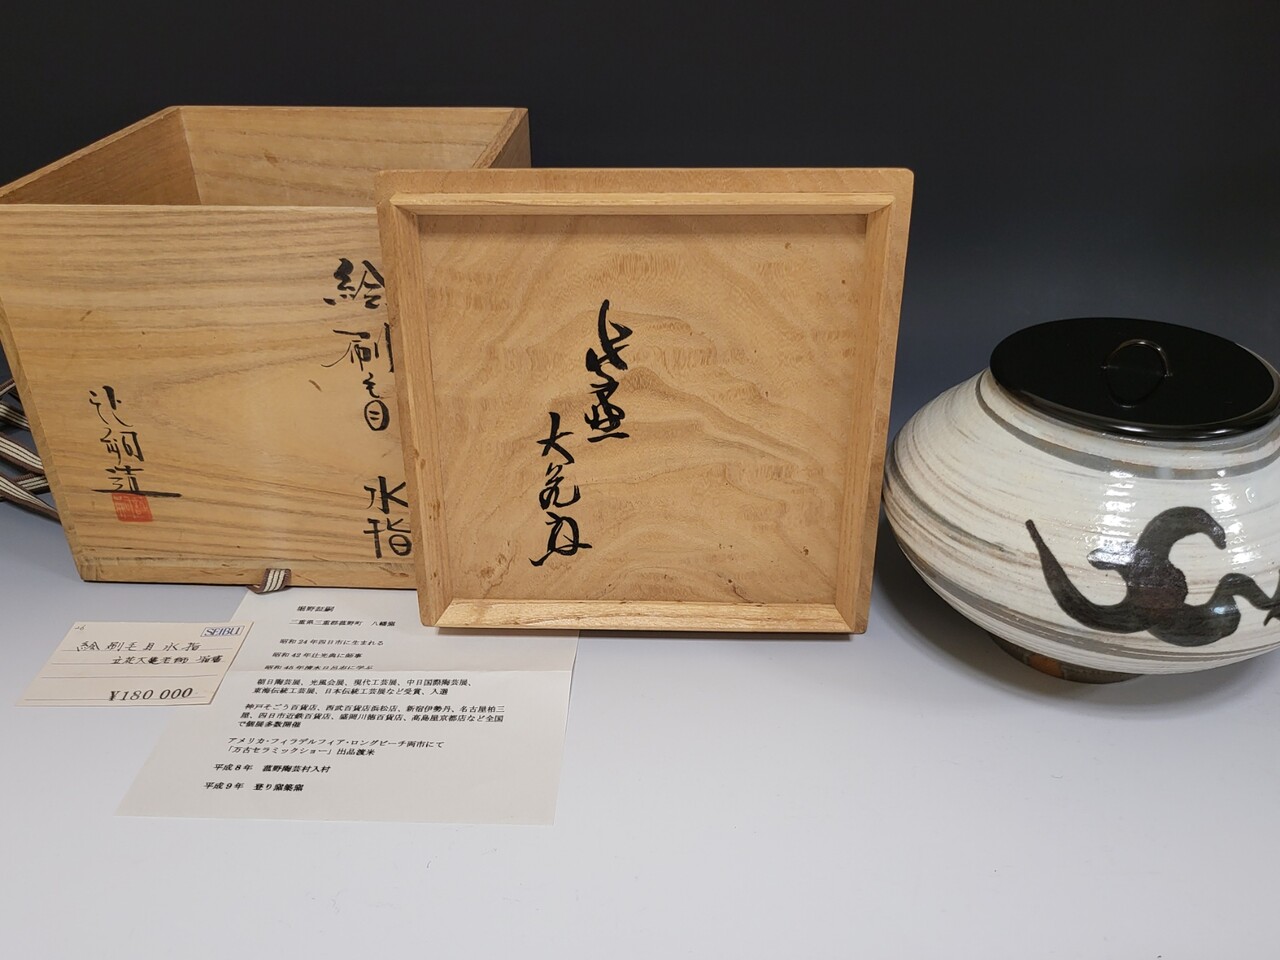 絵刷毛目 水指
造
大亀
SEIBU
絵刷毛目水指
立花大亀老師 箱書
¥180 000
堀野証嗣
三重県三重郡菰野町 八幡窯
昭和24年四日市に生まれる
昭和42年辻光典に師事
昭和45年清水日呂志に学ぶ
朝日陶芸展、光風会展、現代工芸展、中日国際陶芸展、
東海伝統工芸展、日本伝統工芸展など受賞、入選
神戸そごう百貨店、西武百貨店浜松店、新宿伊勢丹、名古屋柏三
屋、四日市近鉄百貨店、盛岡川徳百貨店、高島屋京都店など全国
で個展多数開催
アメリカ・フィラデルフィア・ロングビーチ両市にて
「万古セラミックショー」出品渡米
平成8年 菰野陶芸村入村
平成9年 登り窯築窯